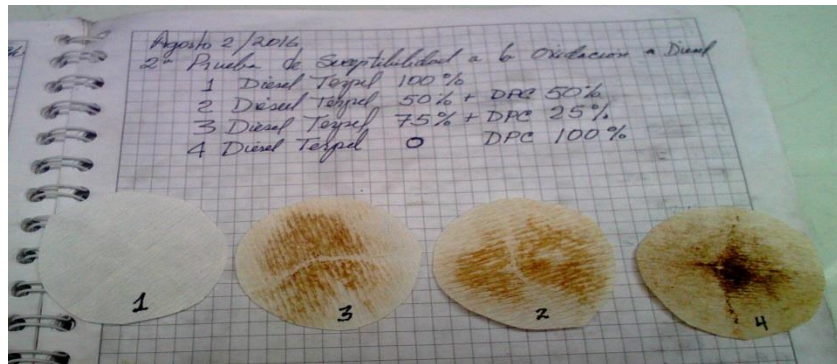 Agosto 2/2016
2ª Prueba de Suseptibilidad a la Oxidacion a Diesel
1 Diesel Terpel 100%
2 Diesel Terpel 50% + DPC 50%
3 Diesel Terpel 75% + DPC 25%
4 Diesel Terpel 0 DPC 100%
1 3 2 4